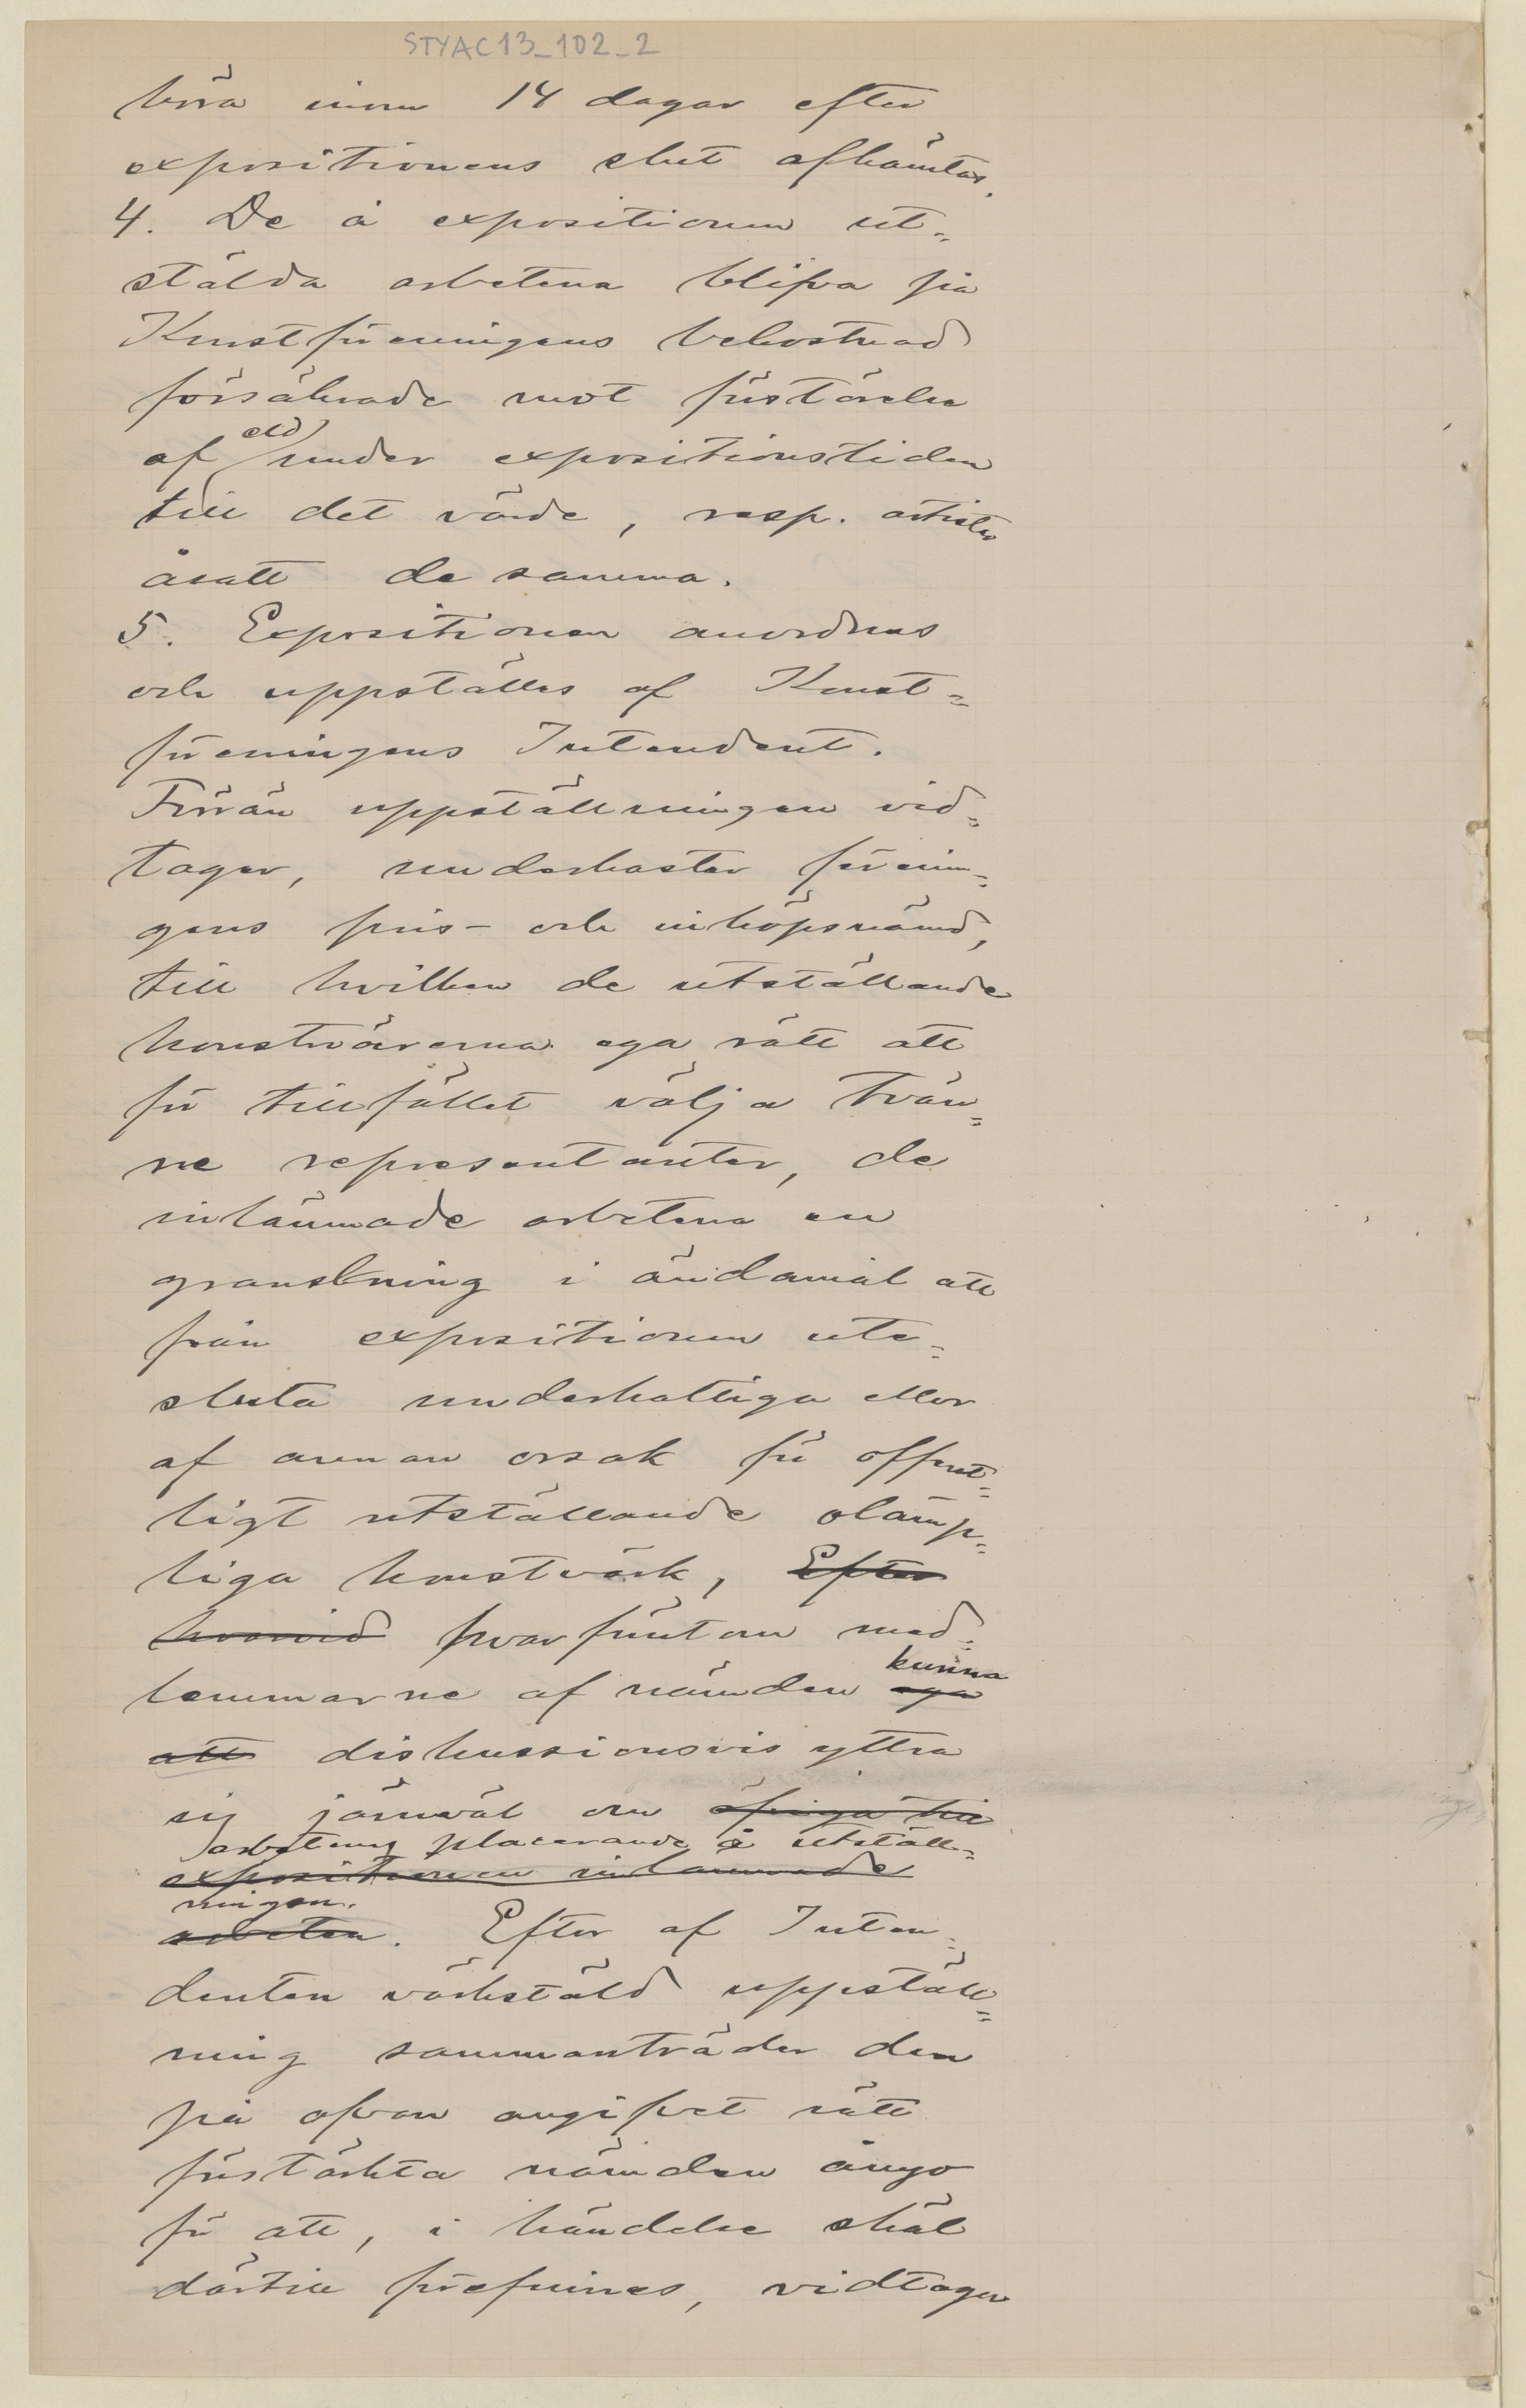 STYAC13_102_2
böra inom 14 dagar efter
expositionens slut afhämtas.
4. De å expositionen ut=
stälda arbetena blifva på
Konstföreningens bekostnad
försäkrade mot förstörelse
af eld under expositionstiden
till det värde, resp. artister
åsatt de samma.
5. Expositionen anordnas
och uppställes af Konst=
föreningens Intendent.
Förrän uppställningen vid=
tager, underkastar förenin=
gens pris- och inköpsnämd,
till hvilken de utställande
konstnärerna ega rätt att
för tillfället välja tvän=
ne representanter, de
inlämnade arbetena en
granskning i ändamål att
från expositionen ute=
sluta underhaltiga eller
af annan orsak för offent=
ligt utställande olämp=
liga konstvärk, Efter
hvarvid hvarförutom med=
lemmarne af nämden ega kunna
att diskussionsvis yttra
sig jämväl om öfriga till
arbetenas placerande å utställ=
expositionen inlämnade
ningen.
arbeten. Efter af Inten=
denten värkstäld uppställ=
ning sammanträder den
på ofvan angifvet sätt
förstärkta nämden ånyo
för att, i händelse skäl
därtill förefinnes, vidtaga